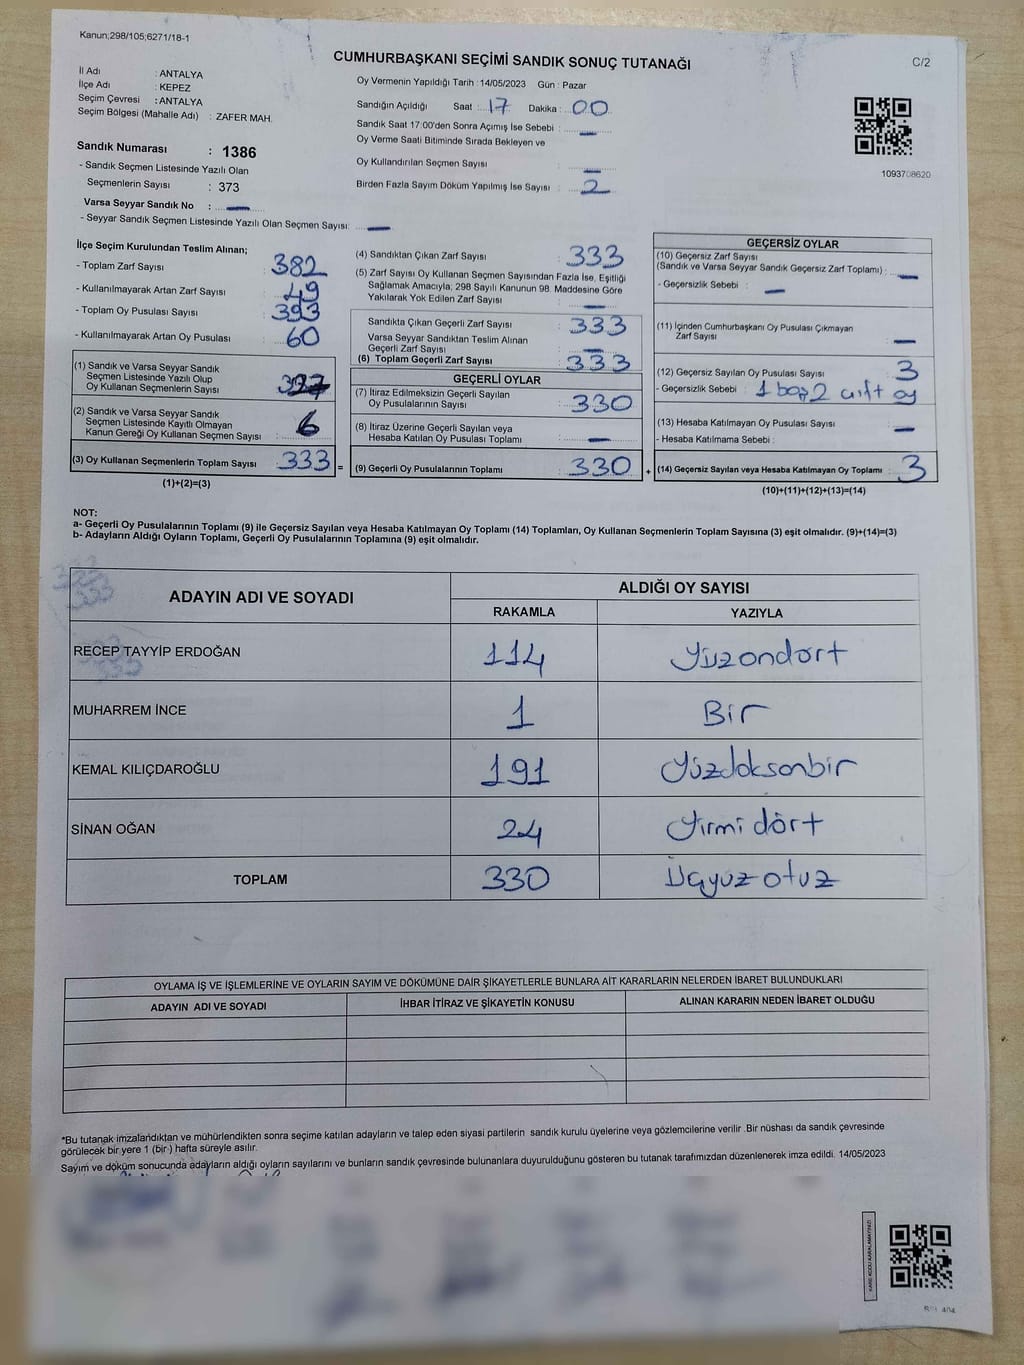 Kanun;298/105;6271/18-1
CUMHURBAŞKANI SEÇİMİ SANDIK SONUÇ TUTANAĞI
C/2
İl Adı : ANTALYA
İlçe Adı : KEPEZ
Seçim Çevresi : ANTALYA
Seçim Bölgesi (Mahalle Adı) : ZAFER MAH.
Oy Vermenin Yapıldığı Tarih : 14/05/2023 Gün : Pazar
Sandığın Açıldığı Saat : 17 Dakika : 00
Sandık Saat 17:00'den Sonra Açımış İse Sebebi : —
Oy Verme Saati Bitiminde Sırada Bekleyen ve
Oy Kullandırılan Seçmen Sayısı —
Birden Fazla Sayım Döküm Yapılmış İse Sayısı : 2
1093708620
Sandık Numarası : 1386
- Sandık Seçmen Listesinde Yazılı Olan
Seçmenlerin Sayısı : 373
Varsa Seyyar Sandık No : —
- Seyyar Sandık Seçmen Listesinde Yazılı Olan Seçmen Sayısı: —
İlçe Seçim Kurulundan Teslim Alınan;
- Toplam Zarf Sayısı : 382
- Kullanılmayarak Artan Zarf Sayısı : 49
- Toplam Oy Pusulası Sayısı : 393
- Kullanılmayarak Artan Oy Pusulası : 60
(1) Sandık ve Varsa Seyyar Sandık
Seçmen Listesinde Yazılı Olup
Oy Kullanan Seçmenlerin Sayısı :
(2) Sandık ve Varsa Seyyar Sandık
Seçmen Listesinde Kayıtlı Olmayan
Kanun Gereği Oy Kullanan Seçmen Sayısı : 6
(3) Oy Kullanan Seçmenlerin Toplam Sayısı : 333 =
(1)+(2)=(3)
(4) Sandıktan Çıkan Zarf Sayısı : 333
(5) Zarf Sayısı Oy Kullanan Seçmen Sayısından Fazla İse, Eşitliği
Sağlamak Amacıyla; 298 Sayılı Kanunun 98. Maddesine Göre
Yakılarak Yok Edilen Zarf Sayısı : —
Sandıkta Çıkan Geçerli Zarf Sayısı : 333
Varsa Seyyar Sandıktan Teslim Alınan
Geçerli Zarf Sayısı : —
(6) Toplam Geçerli Zarf Sayısı : 333
GEÇERLİ OYLAR
(7) İtiraz Edilmeksizin Geçerli Sayılan
Oy Pusulalarının Sayısı : 330
(8) İtiraz Üzerine Geçerli Sayılan veya
Hesaba Katılan Oy Pusulası Toplamı : —
(9) Geçerli Oy Pusulalarının Toplamı : 330 +
GEÇERSİZ OYLAR
(10) Geçersiz Zarf Sayısı
(Sandık ve Varsa Seyyar Sandık Geçersiz Zarf Toplamı) : —
- Geçersizlik Sebebi : —
(11) İçinden Cumhurbaşkanı Oy Pusulası Çıkmayan
Zarf Sayısı : —
(12) Geçersiz Sayılan Oy Pusulası Sayısı : 3
- Geçersizlik Sebebi : 1 boş 2 çift oy
(13) Hesaba Katılmayan Oy Pusulası Sayısı : —
- Hesaba Katılmama Sebebi :
(14) Geçersiz Sayılan veya Hesaba Katılmayan Oy Toplamı : 3
(10)+(11)+(12)+(13)=(14)
NOT:
a- Geçerli Oy Pusulalarının Toplamı (9) ile Geçersiz Sayılan veya Hesaba Katılmayan Oy Toplamı (14) Toplamları, Oy Kullanan Seçmenlerin Toplam Sayısına (3) eşit olmalıdır. (9)+(14)=(3)
b- Adayların Aldığı Oyların Toplamı, Geçerli Oy Pusulalarının Toplamına (9) eşit olmalıdır.
333
333
ADAYIN ADI VE SOYADI ALDIĞI OY SAYISI
RAKAMLA YAZIYLA
RECEP TAYYİP ERDOĞAN 114 Yüzondört
MUHARREM İNCE 1 Bir
KEMAL KILIÇDAROĞLU 191 Yüzdoksanbir
SİNAN OĞAN 24 Yirmi dört
TOPLAM 330 Üçyüz otuz
OYLAMA İŞ VE İŞLEMLERİNE VE OYLARIN SAYIM VE DÖKÜMÜNE DAİR ŞİKAYETLERLE BUNLARA AİT KARARLARIN NELERDEN İBARET BULUNDUKLARI
ADAYIN ADI VE SOYADI İHBAR İTİRAZ VE ŞİKAYETİN KONUSU ALINAN KARARIN NEDEN İBARET OLDUĞU
*Bu tutanak imzalandıktan ve mühürlendikten sonra seçime katılan adayların ve talep eden siyasi partilerin sandık kurulu üyelerine veya gözlemcilerine verilir .Bir nüshası da sandık çevresinde
görülecek bir yere 1 (bir ) hafta süreyle asılır.
Sayım ve döküm sonucunda adayların aldığı oyların sayılarını ve bunların sandık çevresinde bulunanlara duyurulduğunu gösteren bu tutanak tarafımızdan düzenlenerek imza edildi. 14/05/2023